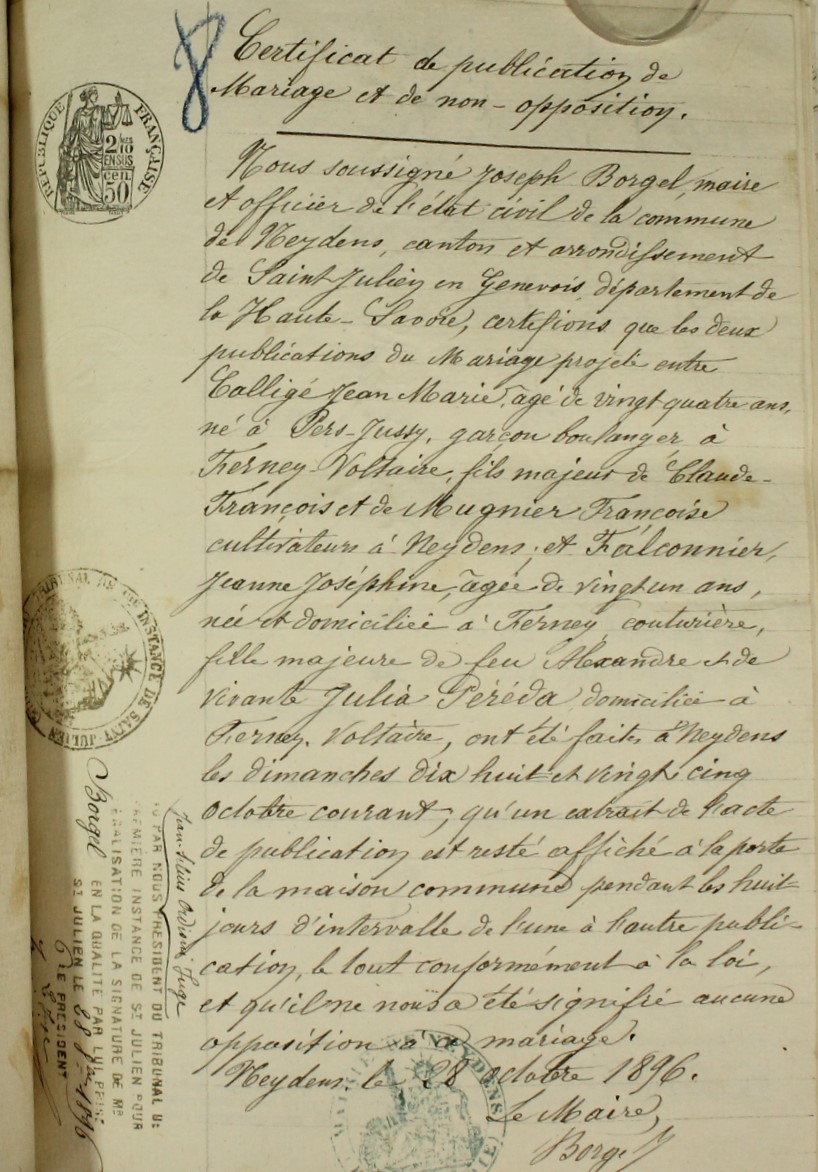 8
Certificat de publication de
Mariage et de non-opposition.
RÉPUBLIQUE FRANÇAISE
2/10
EN SUS
50
Nous soussigné Joseph Borgel, maire
et officier de l'état civil de la commune
de Neydens, canton et arrondissement
de Saint Julien en Genevois, département de
la Haute-Savoie, certifions que les deux
publications du Mariage projeté entre
Calligé Jean Marie, agé de vingt quatre ans,
né à Pers-Jussy, garçon boulanger à
Ferney-Voltaire, fils majeur de Claude-
François et de Mugnier Françoise
cultivateurs à Neydens; et Falconnier,
Jeanne Joséphine, agée de vingt un ans,
née et domiciliée à Ferney, couturière,
fille majeure de feu Alexandre et de
vivante Julia Péréda domiciliée à
Ferney-Voltaire, ont été faites à Neydens
les dimanches dix huit et vingt cinq
octobre courant; qu'un extrait de l'acte
de publication est resté affiché à la porte
de la maison commune pendant les huit
jours d'intervalle de l'une à l'autre publi-
cation, le tout conformément à la loi,
et qu'il ne nous a été signifié aucune
opposition à ce mariage.
Neydens, le 28 octobre 1896.
Le Maire,
Borgel
TRIBUNAL DE 1re INSTANCE DE SAINT-JULIEN
NEYDENS
Juge
PAR NOUS PRÉSIDENT DU TRIBUNAL DE
PREMIÈRE INSTANCE DE ST JULIEN POUR
LÉGALISATION DE LA SIGNATURE DE Mr
Borgel EN LA QUALITÉ PAR LUI PRISE
ST JULIEN LE 28 8bre 1896
LE PRÉSIDENT